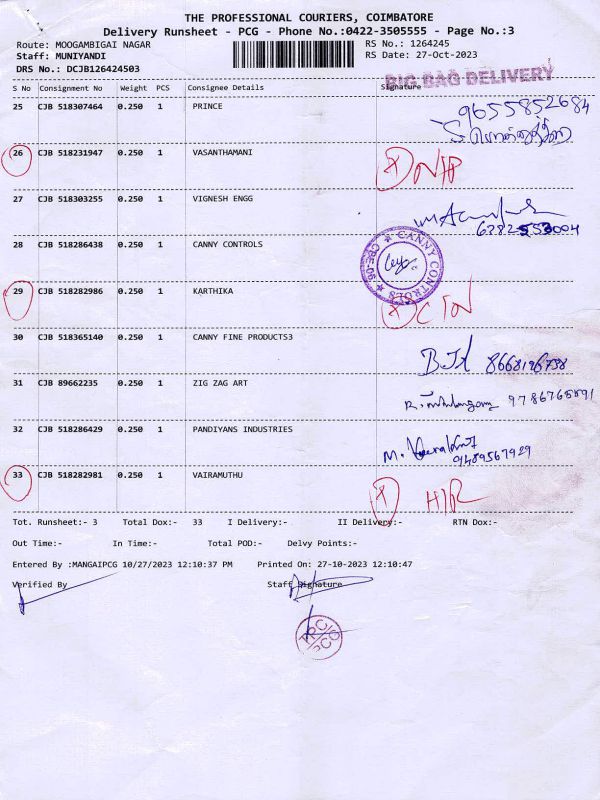 THE PROFESSIONAL COURIERS, COIMBATORE
Delivery Runsheet - PCG - Phone No.:0422-3505555 - Page No.:3
Route: MOOGAMBIGAI NAGAR RS No.: 1264245
Staff: MUNIYANDI RS Date: 27-Oct-2023
DRS No.: DCJB126424503
BIG BAG DELIVERY
S No Consignment No Weight PCS Consignee Details Signature
25 CJB 518307464 0.250 1 PRINCE 9655852684
26 CJB 518231947 0.250 1 VASANTHAMANI X
27 CJB 518303255 0.250 1 VIGNESH ENGG
28 CJB 518286438 0.250 1 CANNY CONTROLS CANNY CONTROLS
29 CJB 518282986 0.250 1 KARTHIKA X
30 CJB 518365140 0.250 1 CANNY FINE PRODUCTS3
31 CJB 89662235 0.250 1 ZIG ZAG ART
32 CJB 518286429 0.250 1 PANDIYANS INDUSTRIES M. 9489567929
33 CJB 518282981 0.250 1 VAIRAMUTHU X
Tot. Runsheet:- 3 Total Dox:- 33 I Delivery:- II Delivery:- RTN Dox:-
Out Time:- In Time:- Total POD:- Delvy Points:-
Entered By :MANGAIPCG 10/27/2023 12:10:37 PM Printed On: 27-10-2023 12:10:47
Verified By Staff Signature